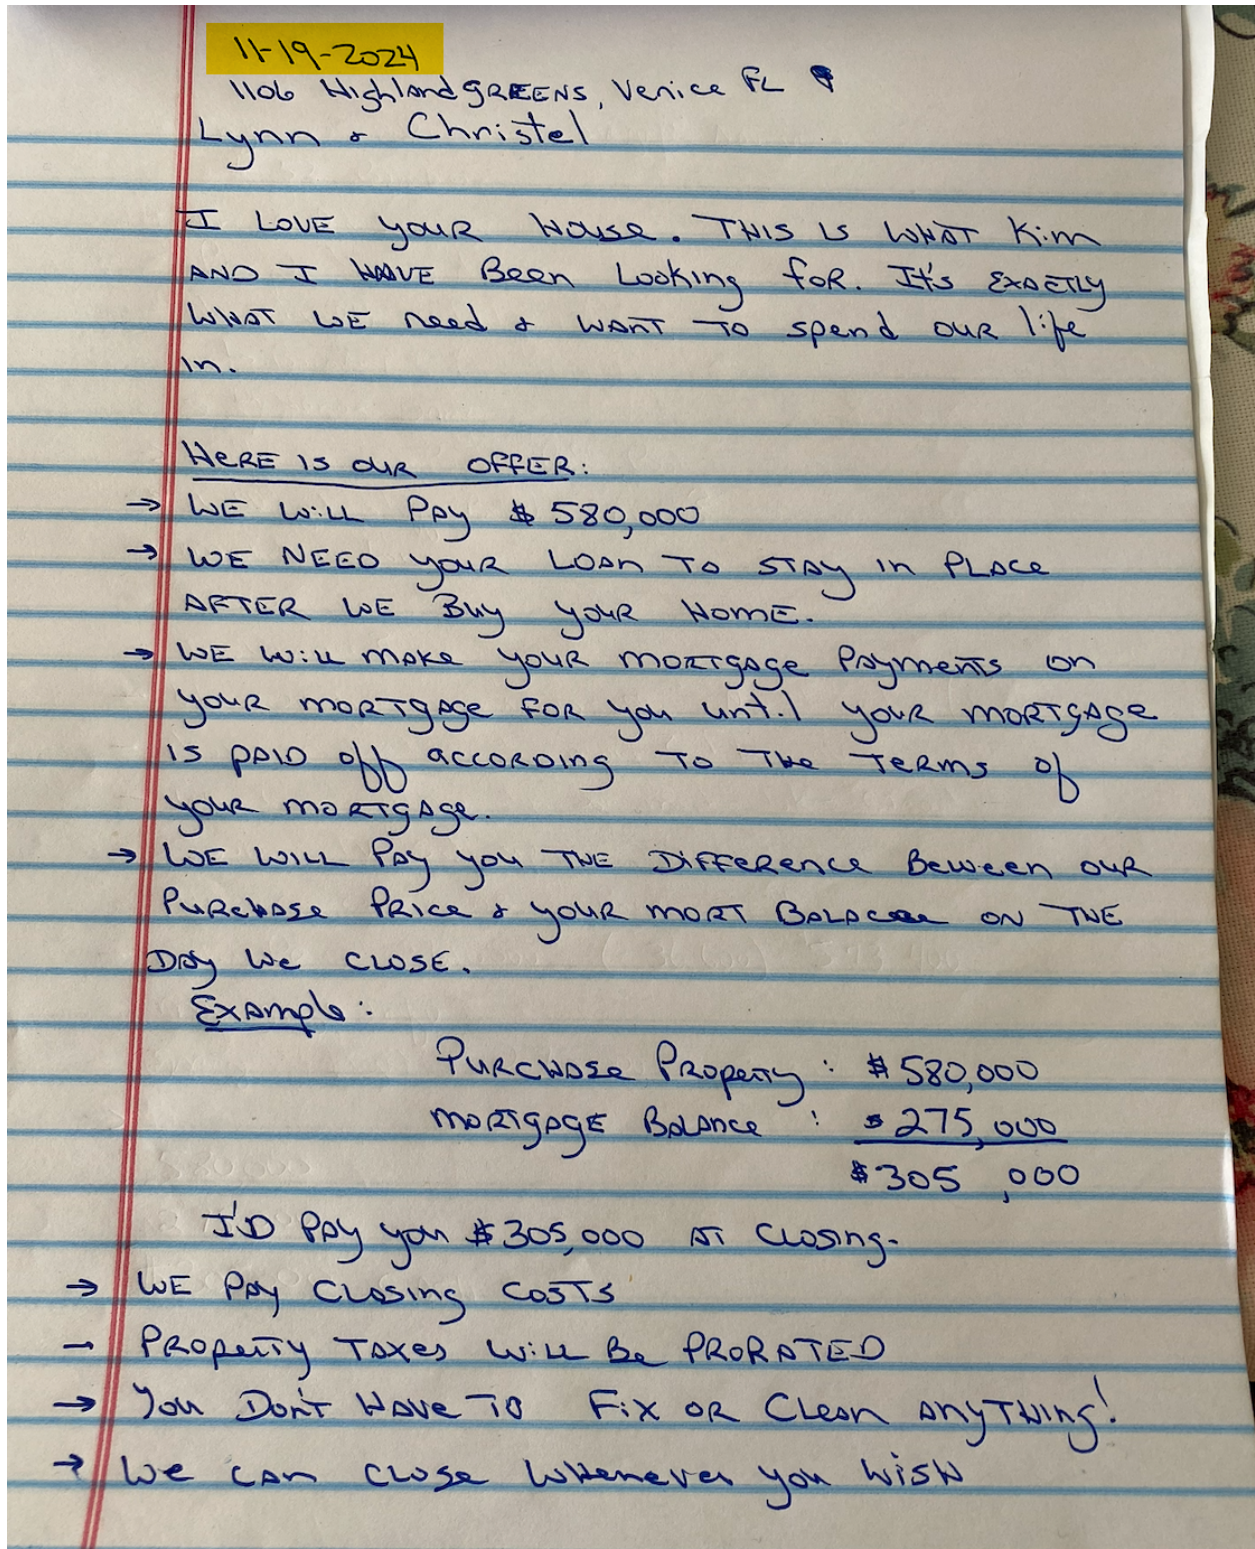 11-19-2024
1106 Highland GREENS, Venice FL
Lynn & Christel
I LOVE YOUR House. THIS IS WHAT Kim
AND I HAVE Been Looking foR. It's EXACTLY
WHAT WE need & WANT TO spend OUR life
in.
HERE IS OUR OFFER:
→ WE Will PAy $ 580,000
→ WE NEED YOUR LOAN TO STAY in PLACE
AFTER WE Buy YOUR HOME.
→ WE Will MAKE YOUR MORTgAge PAYmENTS on
YOUR MORTgAge FOR you until YOUR MORTgAge
IS PAID off ACCORDing TO THE TERMS of
YOUR MORTgAge.
→ WE WILL PAy you THE DiffERENCE Beween OUR
PURCHASE PRICE & YOUR MORT BALACE ON THE
DAy We CLOSE.
Example:
PURCHASE PROPERTY : $ 580,000
MORTgAgE BALANCE : $ 275,000
$305,000
I'D PAy you $305,000 AT CLOSing.
→ WE PAy CLOSing COSTS
→ PROPERTY TAXES Will Be PRORATED
→ You DON'T HAVE TO FiX OR CLEAN ANYTHING!
→ We CAN CLOSE WHENEVER you WISH